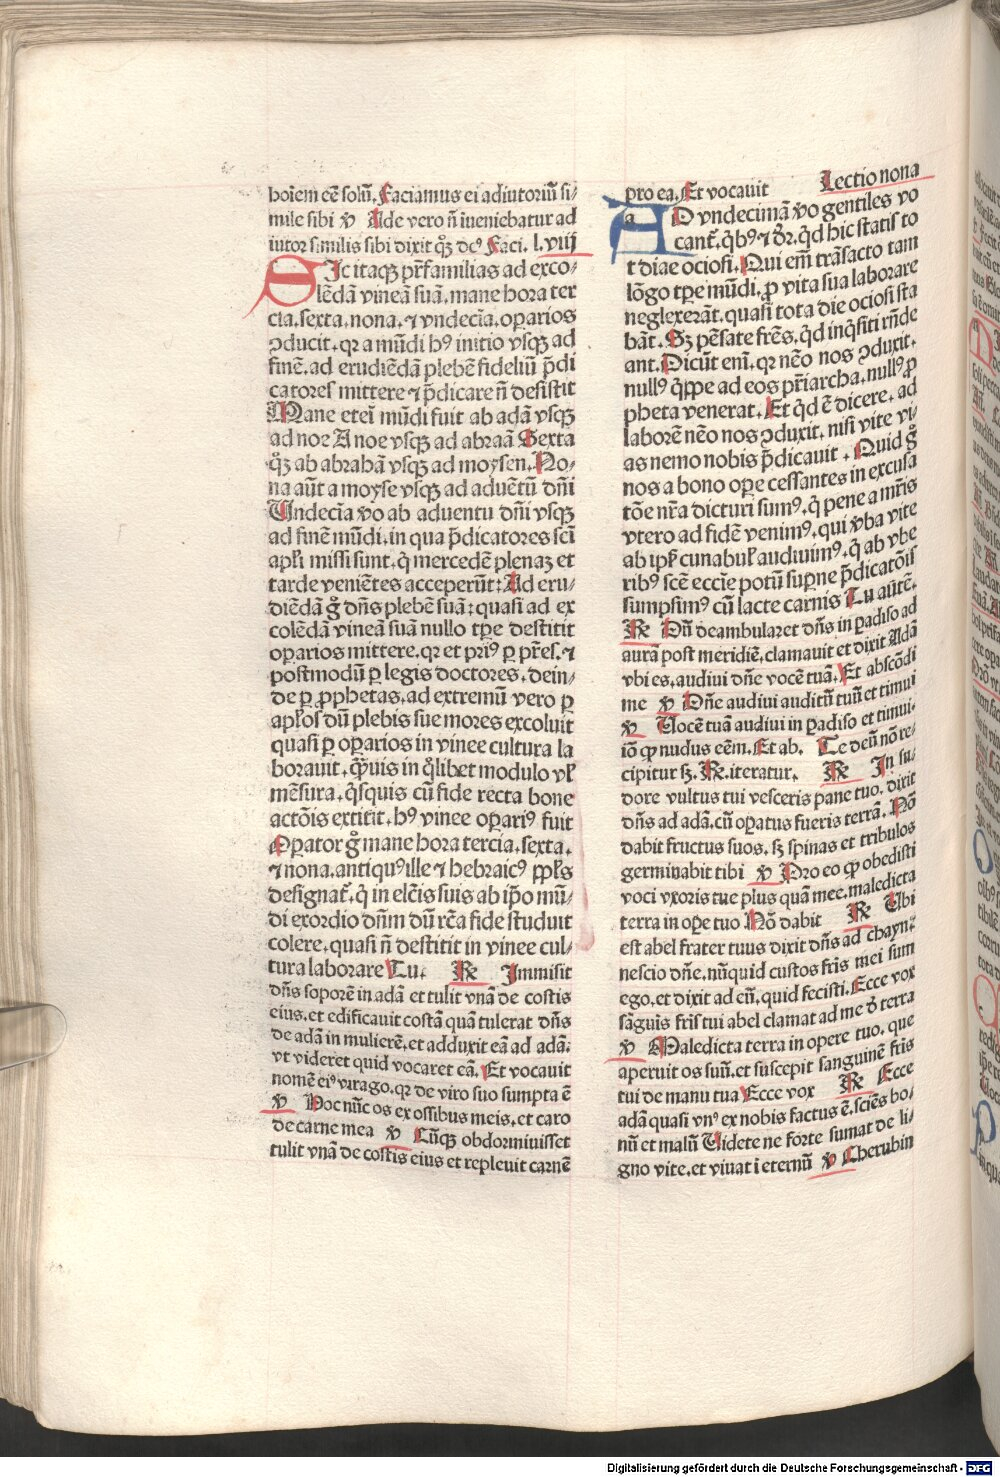 hoiem eē solū. Faciamus ei adiutoriū si⸗
mile sibi ℣ Ade vero ñ iueniebatur ad
iutor similis sibi dixit qͦꝫ deꝰ Faci. l. viij
SIc itaqꝫ pr̄familias ad exco⸗
lēdā vineā suā. mane hora ter
cia. sexta. nona. ⁊ vndecīa. oꝑarios
ꝯducit. qꝛ a mūdi hꝰ initio vsqꝫ ad
finē. ad erudiēdā plebē fideliū p̄di
catores mittere ⁊ p̄dicare ñ desistit
Mane eteī mūdi fuit ab adā vsqꝫ
ad noe A noe vsqꝫ ad abraā Sexta
qͦꝫ ab abrahā vsqꝫ ad moysen. No⸗
na aūt a moyse vsqꝫ ad aduētū dn̄i
Undecīa ꝟo ab aduentu dn̄i vsqꝫ
ad finē mūdi. in qua p̄dicatores sc̄i
apl̄i missi sunt. q̇ mercedē plenaꝫ et
tarde veniētes acceperūt: Ad eru⸗
diēdā gͦ dn̄s plebē suā: quasi ad ex
colēdā vineā suā nullo tꝑe destitit
oꝑarios mittere. qꝛ et priꝰ ꝑ pr̄es. ⁊
postmodū ꝑ legis doctores. dein⸗
de ꝑ ꝓphetas. ad extremū vero ꝑ
apl̄os dū plebis sue mores excoluit
quasi ꝑ oꝑarios in vinee cultura la
borauit. q̄ꝫuis in qͦlibet modulo vl̓
mēsura. q̇squis cū fide recta bone
actōis extitit. hꝰ vinee oꝑariꝰ fuit
Oꝑator gͦ mane hora tercia. sexta.
⁊ nona. antiquꝰ ille ⁊ hebraicꝰ ppl̄s
designat̄. q̇ in elc̄is suis ab ip̄o mū⸗
di exordio dn̄m dū rc̄a fide studuit
colere. quasi ñ destitit in vinee cul⸗
tura laborare Tu. ℟ Immisit
dn̄s soporē in adā et tulit vnā de costis
eius. et edificauit costā quā tulerat dn̄s
de adā in mulierē. et adduxit eā ad adā.
vt videret quid vocaret eā. Et vocauit
nomē eiꝰ virago. qꝛ de viro suo sumpta ē
℣ Hoc nūc os ex ossibus meis. et caro
de carne mea ℣ Cūqꝫ obdormiuisset
tulit vnā de costis eius et repleuit carnē
pro ea. Et vocauit Lectio nona
AD vndecimā ꝟo gentiles vo
cant̄. q̇bꝰ ⁊ dr̄. qd̄ hic statis to
ta die ociosi. Qui em̄ trāsacto tam
lōgo tꝑe mūdi. ꝓ vita sua laborare
neglexerāt. quasi tota die ociosi sta
bāt. Sꝫ pēsate fr̄es. qd̄ inq̇siti rn̄de
ant. Dicūt eni. qꝛ nēo nos ꝯduxit.
nullꝰ q̇ppe ad eos pr̄iarcha. nullꝰ ꝓ
pheta venerat. Et qd̄ ē dicere. ad
laborē nēo nos ꝯduxit. nisi vite vi⸗
as nemo nobis p̄dicauit. Quid gͦ
nos a bono oꝑe cessantes in excusa
tōe nr̄a dicturi sumꝰ. q̇ pene a mr̄is
vtero ad fidē venimꝰ. qui ꝟba vite
ab ip̄is cunabul̓ audiuimꝰ. q̇ ab vbe
ribꝰ scē eccl̄ie potū suꝑne p̄dicatōis
sumpsimꝰ cū lacte carnis Tu autē.
℟ Dū deambularet dn̄s in ꝑadiso ad
aurā post meridiē. clamauit et dixit Adā
vbi es. audiui dn̄e vocē tuā. Et abscōdi
me ℣ Dn̄e audiui auditū tuū et timui
℣ Uocē tuā audiui in ꝑadiso et timui.
iō ꝙ nudus eēm. Et ab. Te deū nō re⸗
cipitur sꝫ. ℟. iteratur. ℟ In su⸗
dore vultus tui vesceris pane tuo. dixit
dn̄s ad adā. cū oꝑatus fueris terrā. Nō
dabit fructus suos. sꝫ spinas et tribulos
germinabit tibi ℣ Pro eo ꝙ obedisti
voci vxoris tue plus quā mee. maledicta
terra in oꝑe tuo Nō dabit ℟ Ubi
est abel frater tuus dixit dn̄s ad chayn.
nescio dn̄e. nūquid custos fr̄is mei sum
ego. et dixit ad eū. quid fecisti. Ecce vox
sāguis fr̄is tui abel clamat ad me d̓ terra
℣ Maledicta terra in opere tuo. que
aperuit os suū. et suscepit sanguinē fr̄is
tui de manu tua Ecce vox ℟ Ecce
adā quasi vnꝰ ex nobis factus ē. sciēs bo⸗
nū et malū Uidete ne forte sumat de li⸗
gno vite. et viuat i eternū ℣ Cherubin
Digitalisierung gefördert durch die Deutsche Forschungsgemeinschaft - DFG